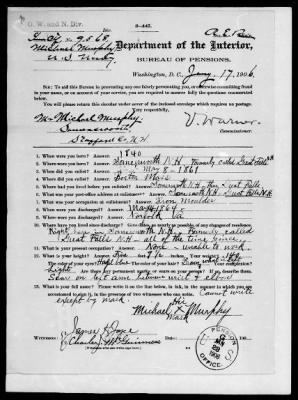 O. W. and N. Div.
3-447.
Michael Murphy
U.S. Navy
Department of the Interior,
BUREAU OF PENSIONS,
Washington, D. C., Jany 17, 1906
SIR: To aid this Bureau in preventing any one falsely personating you, or otherwise committing fraud
in your name, or on account of your service, you are required to answer fully the questions enumerated
below.
You will please return this circular under cover of the inclosed envelope which requires no postage.
Very respectfully,
Mr Michael Murphy
Somersworth
Strafford Co N.H
V. Warner
Commissioner.
1. When were you born? Answer. 1840
2. Where were you born? Answer. Somersworth N.H - formerly called Great Falls N.H
3. When did you enlist? Answer. May 8 - 1861
4. Where did you enlist? Answer. Boston Mass
5. Where had you lived before you enlisted? Answer. Somersworth N.H - then Great Falls
6. What was your post-office address at enlistment? Answer. Somersworth N.H, Great Falls N.H
7. What was your occupation at enlistment? Answer. Iron Moulder
8. When were you discharged? Answer. 1864
9. Where were you discharged? Answer. Norfolk Va
10. Where have you lived since discharge? Give dates, as nearly as possible, of any changes of residence.
Right here in Somersworth N.H formerly called
Great Falls N.H - all of the time since
11. What is your present occupation? Answer. None - unable to work
12. What is your height? Answer. Five ft 7 1/2 in.
The color of your eyes?
Light. Are there any permanent marks or scars on your person? If so, describe them.
Scar on left arm
13. What is your full name? Please write it on the line below, in ink, in the manner in which you are
accustomed to sign it, in the presence of two witnesses who can write. Cannot write
except by mark.
His
Michael X Murphy
Mark
James Joyce
Charles J. McGuinness
PENSION
OFFICE
U S
JAN
1906